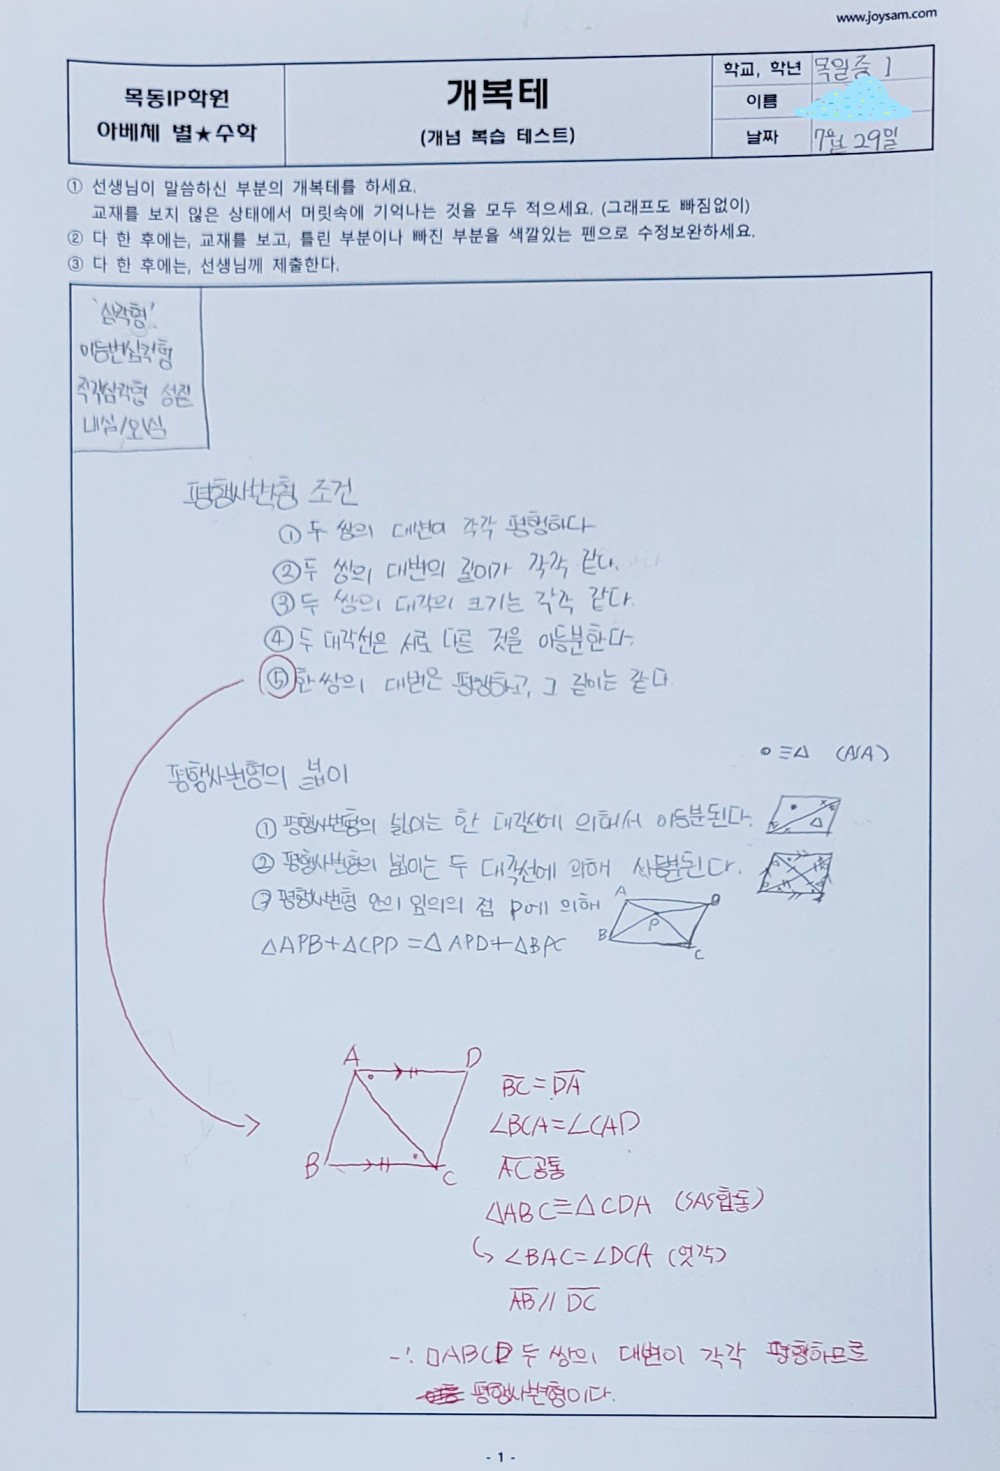 www.joysam.com
목동IP학원
아베체 별★수학
개복테
(개념 복습 테스트)
학교, 학년 목일중 1
이름
날짜 7월 29일
① 선생님이 말씀하신 부분의 개복테를 하세요.
교재를 보지 않은 상태에서 머릿속에 기억나는 것을 모두 적으세요. (그래프도 빠짐없이)
② 다 한 후에는, 교재를 보고, 틀린 부분이나 빠진 부분을 색깔있는 펜으로 수정보완하세요.
③ 다 한 후에는, 선생님께 제출한다.
'삼각형'
이등변삼각형
직각삼각형 성질
내심/외심
평행사변형 조건
① 두 쌍의 대변이 각각 평행하다
② 두 쌍의 대변의 길이가 각각 같다.
③ 두 쌍의 대각의 크기는 각각 같다.
④ 두 대각선은 서로 다른 것을 이등분한다.
⑤ 한 쌍의 대변은 평행하고, 그 길이는 같다.
평행사변형의 넓이
○≡△ (ASA)
① 평행사변형의 넓이는 한 대각선에 의해서 이등분된다.
② 평행사변형의 넓이는 두 대각선에 의해 사등분된다.
③ 평행사변형 안의 임의의 점 P에 의해
△APB+△CPD=△APD+△BPC
A D
B P C
A D
B C
BC=DA
∠BCA=∠CAD
AC공통
△ABC≡△CDA (SAS합동)
↳ ∠BAC=∠DCA (엇각)
AB//DC
∴ □ABCD 두 쌍의 대변이 각각 평행하므로
평행사변형이다.
- 1 -